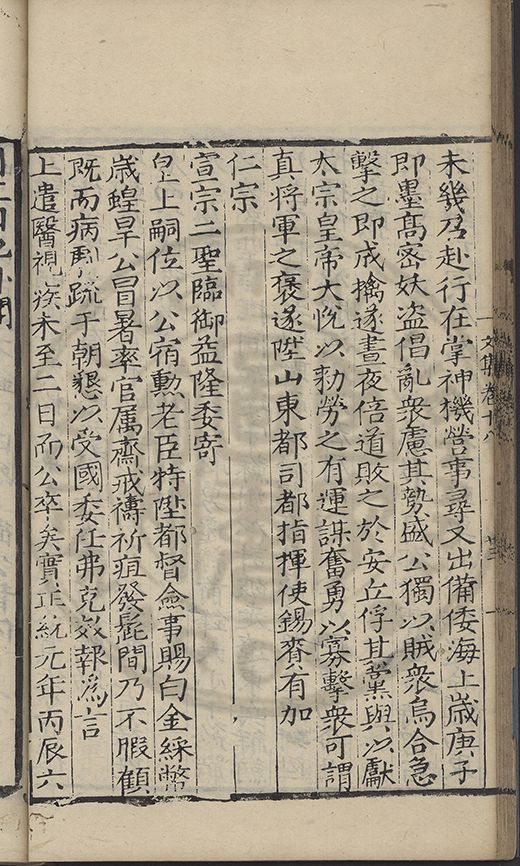 未幾召赴行在掌神機營事尋又出備倭海上歲庚子
即墨髙密妖盗倡亂衆慮其勢盛公獨以賊衆烏合急
擊之即成擒遂晝夜倍道敗之於安丘俘其黨與以獻
太宗皇帝大悅以勑勞之有運謀奮勇以寡擊衆可謂
真將軍之褒遂陞山東都司都指揮使錫賚有加
仁宗
宣宗二聖臨御益隆委寄
皇上嗣位以公宿勲老臣特陞都督僉事賜白金綵幣
歲蝗旱公冒暑率官属齋戒禱祈疽發髭間乃不暇顧
既而病劇疏于朝懇以受國委任弗克效報爲言
上遣醫視疾未至二日而公卒矣實正統元年丙辰六
文集卷十六